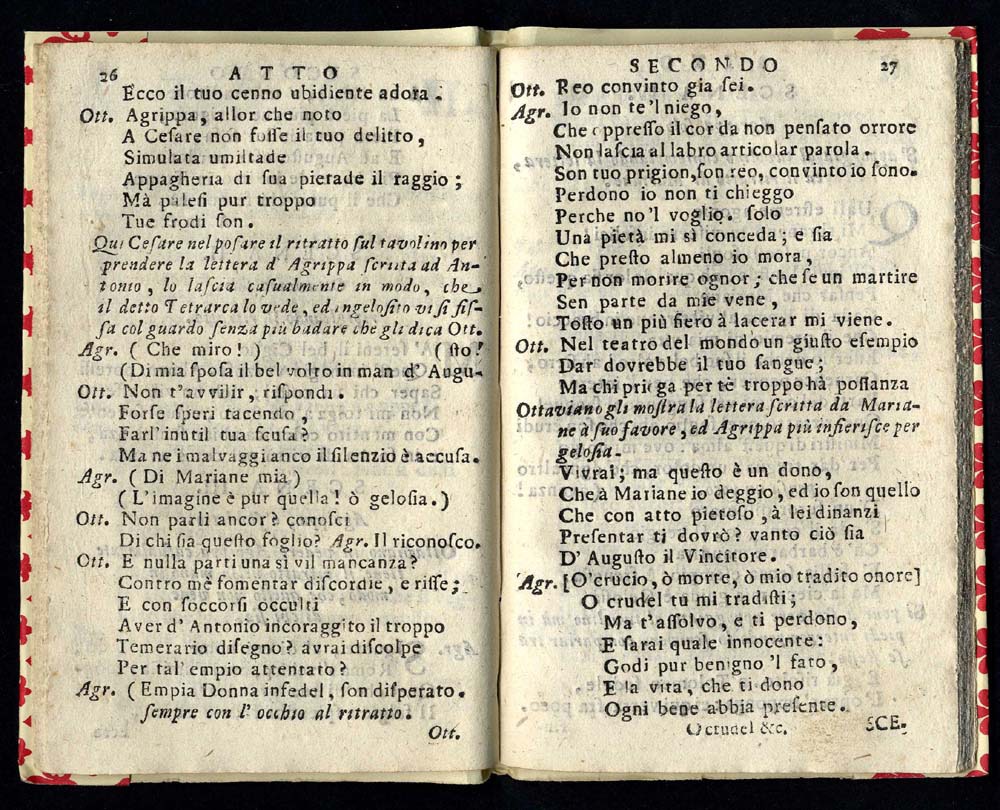 26 ATTO
Ecco il tuo cenno ubidiente adora.
Ott. Agrippa, allor che noto
A Cesare non fosse il tuo delitto,
Simulata umiltade
Appagheria di sua pietade il raggio;
Mà palesi pur troppo
Tue frodi son.
Qui Cesare nel posare il ritratto sul tavolino per
prendere la lettera d' Agrippa scritta ad An-
tonio, lo lascia casualmente in modo, che
il detto Tetrarca lo vede, ed ingelosito vi si fis-
sa col guardo senza più badare che gli dica Ott.
Agr. ( Che miro! ) ( sto!
(Di mia sposa il bel volto in man d' Augu-
Ott. Non t'avvilir, rispondi.
Forse speri tacendo,
Farl' inutil tua scusa?
Ma ne i malvaggi anco il silenzio è accusa.
Agr. ( Di Mariane mia )
( L'imagine è pur quella! ò gelosia.)
Ott. Non parli ancor? conosci
Di chi sia questo foglio? Agr. Il riconosco.
Ott. E nulla parti una sì vil mancanza?
Contro mè fomentar discordie, e risse;
E con soccorsi occulti
Aver d' Antonio incoraggito il troppo
Temerario disegno? avrai discolpe
Per tal' empio attentato?
Agr. (Empia Donna infedel, son disperato.
sempre con l' occhio al ritratto.
Ott.
SECONDO 27
Ott. Reo convinto gia sei.
Agr. Io non te'l niego,
Che oppresso il cor da non pensato orrore
Non lascia al labro articolar parola.
Son tuo prigion, son reo, convinto io sono.
Perdono io non ti chieggo
Perche no'l voglio. solo
Una pietà mi sì conceda; e sia
Che presto almeno io mora,
Per non morire ognor; che se un martire
Sen parte da mie vene,
Tosto un più fiero à lacerar mi viene.
Ott. Nel teatro del mondo un giusto esempio
Dar dovrebbe il tuo sangue;
Ma chi priega per tè troppo hà possanza
Ottaviano gli mostra la lettera scritta da Maria-
ne à suo favore, ed Agrippa più infierisce per
gelosia.
Vivrai; ma questo è un dono,
Che à Mariane io deggio, ed io son quello
Che con atto pietoso, à lei dinanzi
Presentar ti dovrò? vanto ciò sia
D' Augusto il Vincitore.
Agr. [O'crucio, ò morte, ò mio tradito onore]
O crudel tu mi tradisti;
Ma t'assolvo, e ti perdono,
E sarai quale innocente:
Godi pur benigno 'l fato,
E la vita, che ti dono
Ogni bene abbia presente.
O crudel &c. SCE-